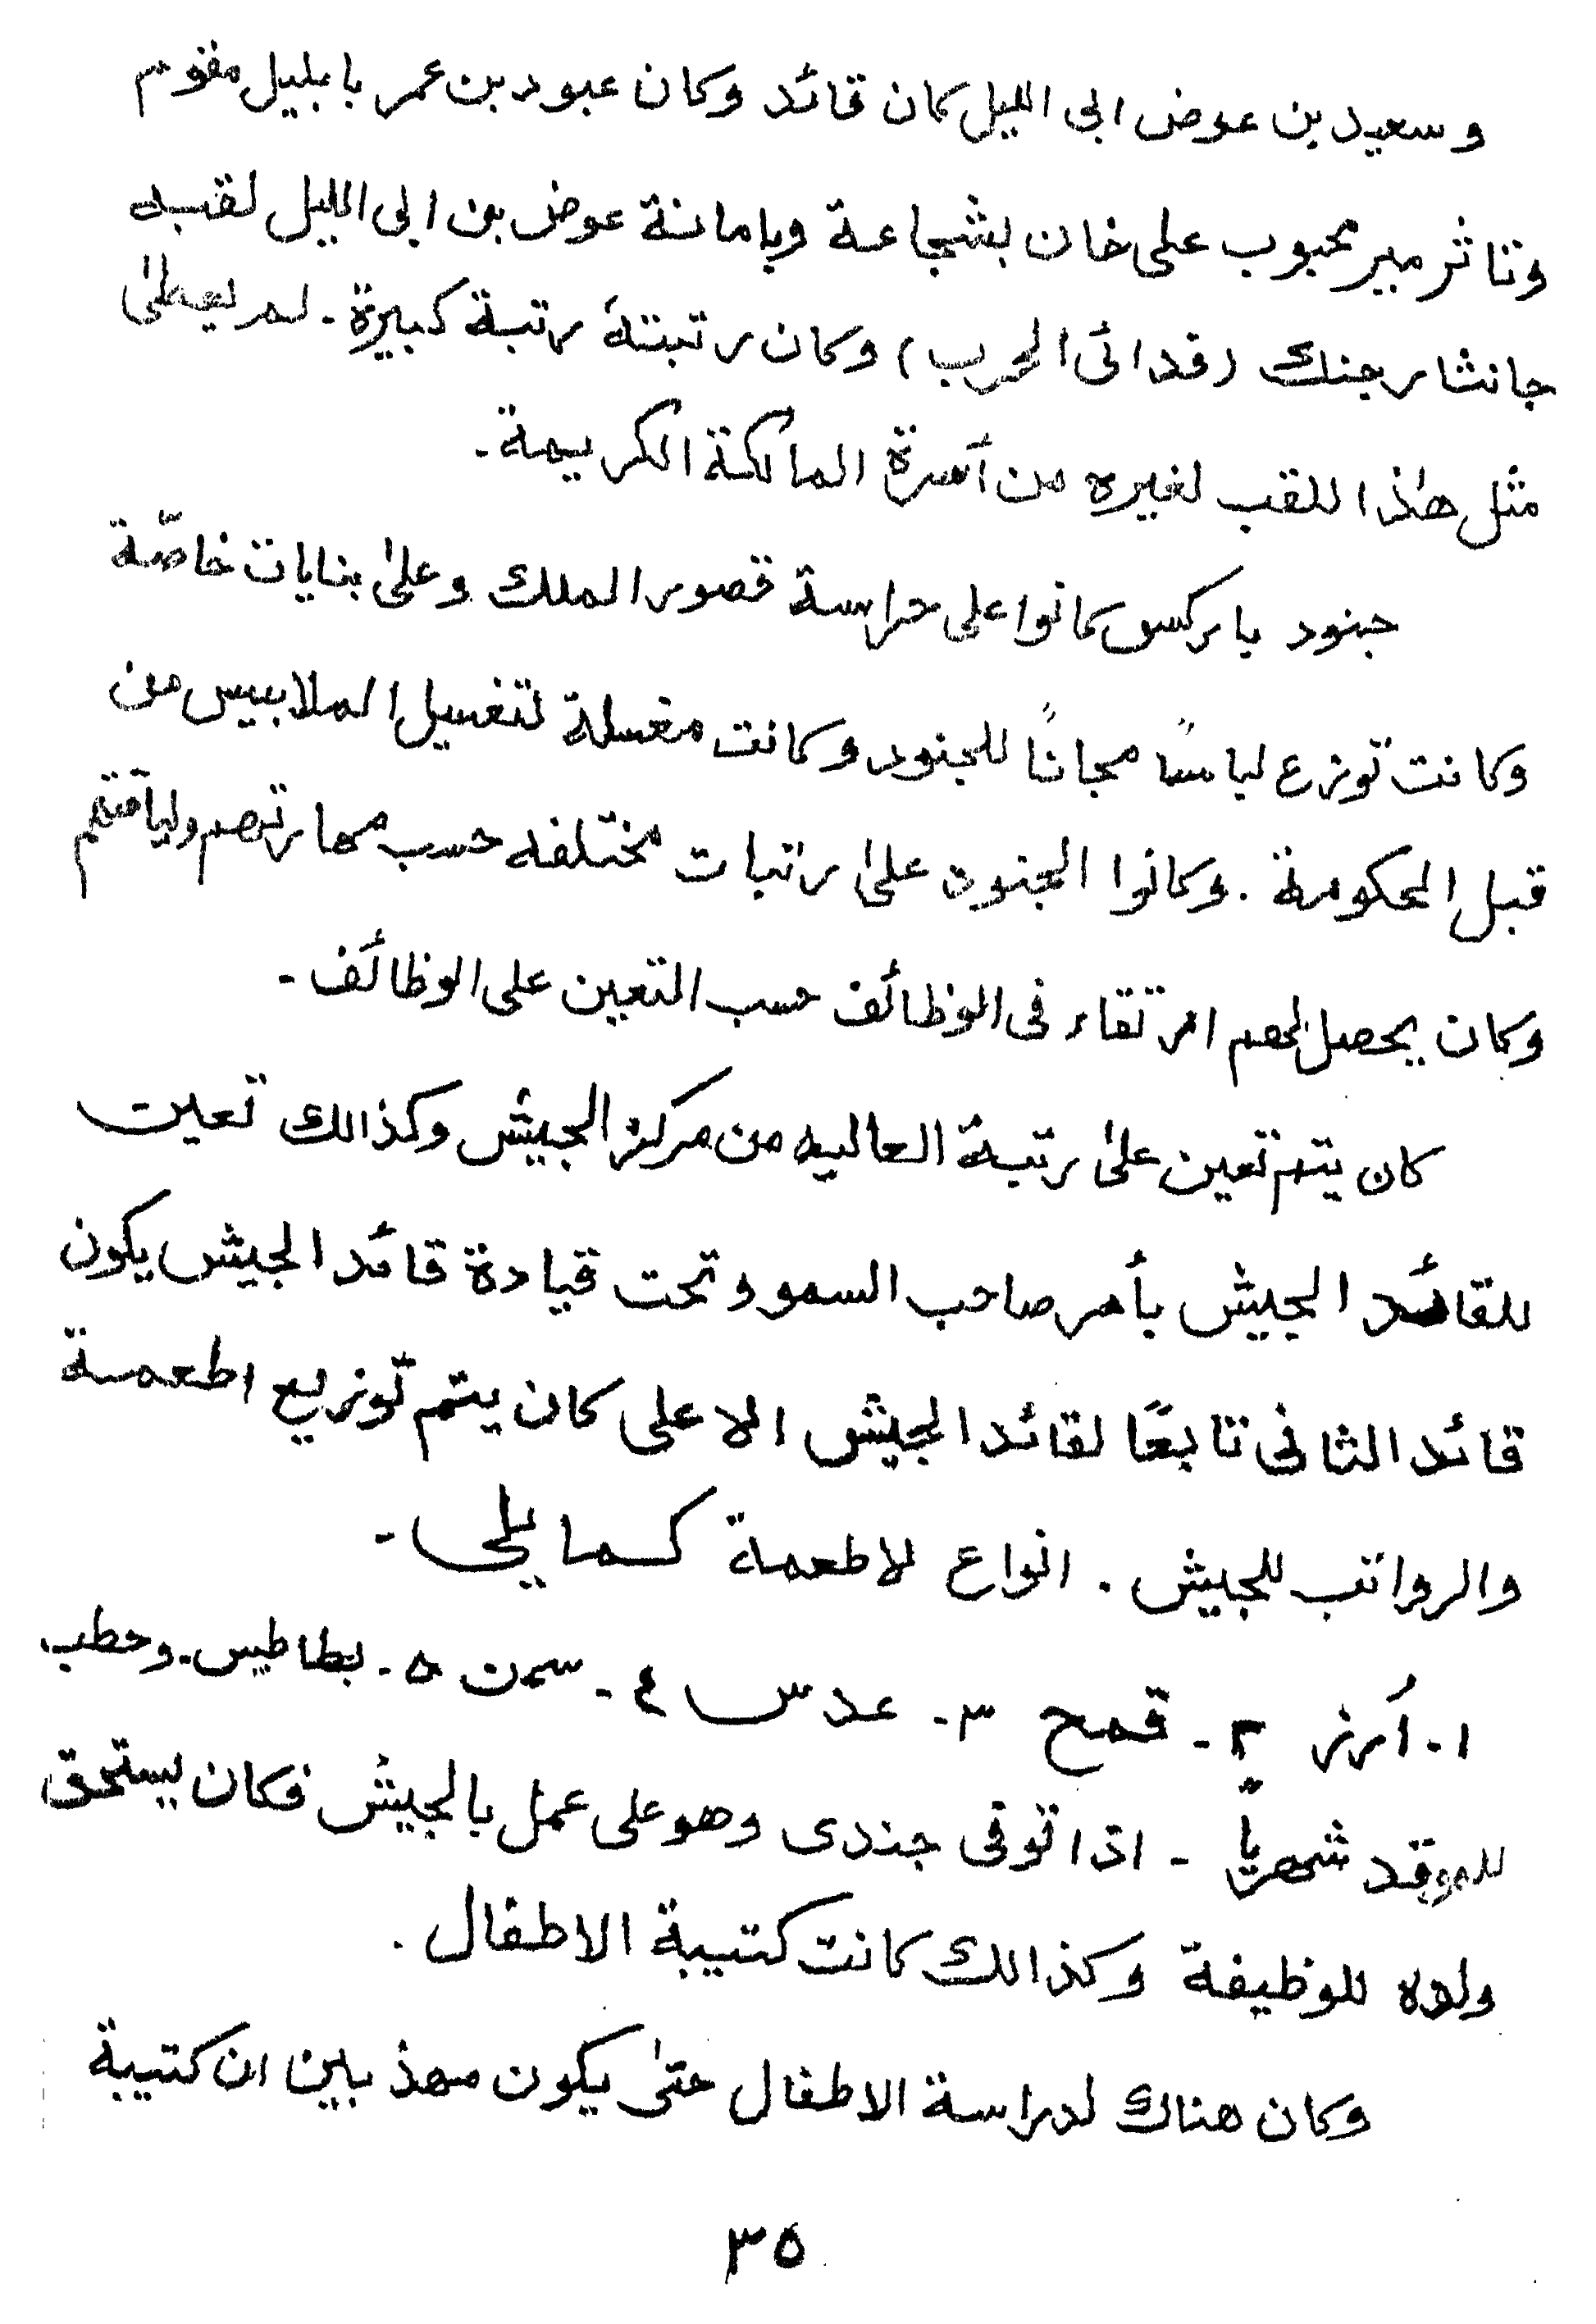 و سعيد بن عوض ابى الليل كان قائد وكان عبود بن عمر بابليل مقوم
وتاثر مير محبوب على خان بشجاعة وبامانة عوض بن ابى الليل لقبه
جانثار جنك (فدائى الحرب) وكان رتبتة رتبة كبيرة - لم يعطىٰ
مثل هٰذا للقب لغيره من أسرة المالكة الكريمة -
جنود باركس كانوا على حراسة قصور الملك وعلىٰ بنايات خاصّة
وكانت توزع لباسًا مجانًا للجنود وكانت مغسلة لتغسيل الملابيس من
قبل الحكومة . وكانوا الجنود علىٰ رتبات مختلفه حسب مهارتهم ولياقتهم
وكان يحصل لهم ارتقاء فى الوظائف حسب التعين على الوظائف -
كان يتم تعين علىٰ رتبة العاليه من مركز الجيش وكذالك تعين
للقائد الجيش بأمر صاحب السمو وتحت قيادة قائد الجيش يكون
قائد الثانى تابعًا لقائد الجيش الاعلى كان يتم توزيع اطعمة
والرواتب للجيش . انواع لاطعمة كما يلى -
١ - أرز ٢ - قمح ٣ - عدس ٤ - سمن ٥ - بطاطيس - وحطب
للموقد شهرياً - اذا توفى جندى وهو على عمل بالجيش فكان يستحق
ولده للوظيفة وكذالك كانت كتيبة الاطفال .
وكان هناك لدراسة الاطفال حتىٰ يكون مهذبين ان كتيبة
٣٥